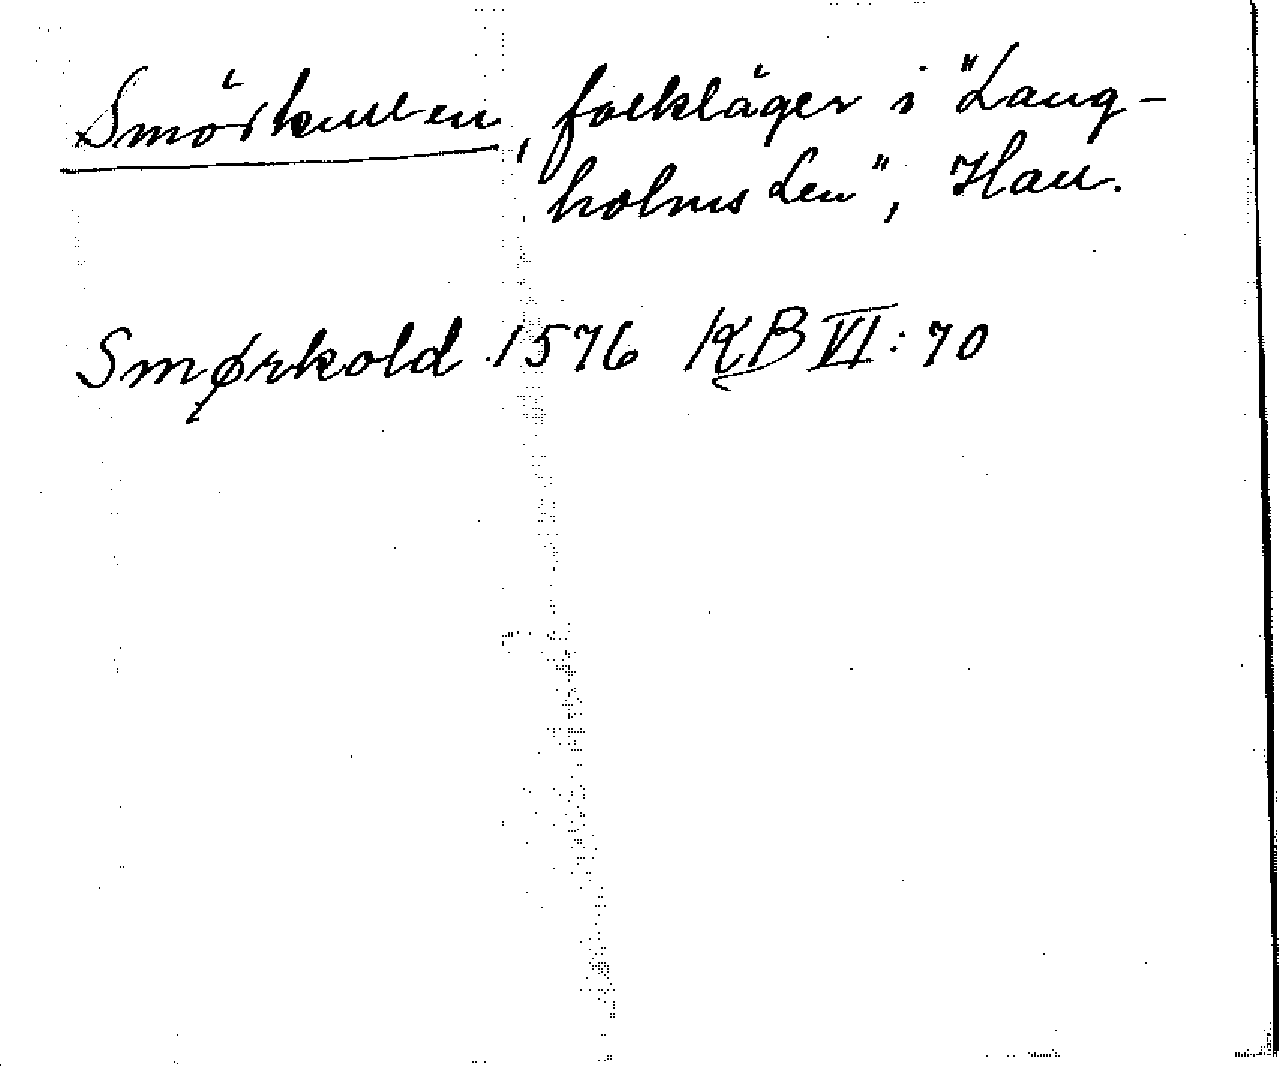 Smörkullen, folkläger i "Laug-
holms Len", Hau.
Smørkold 1576 KB VI: 70